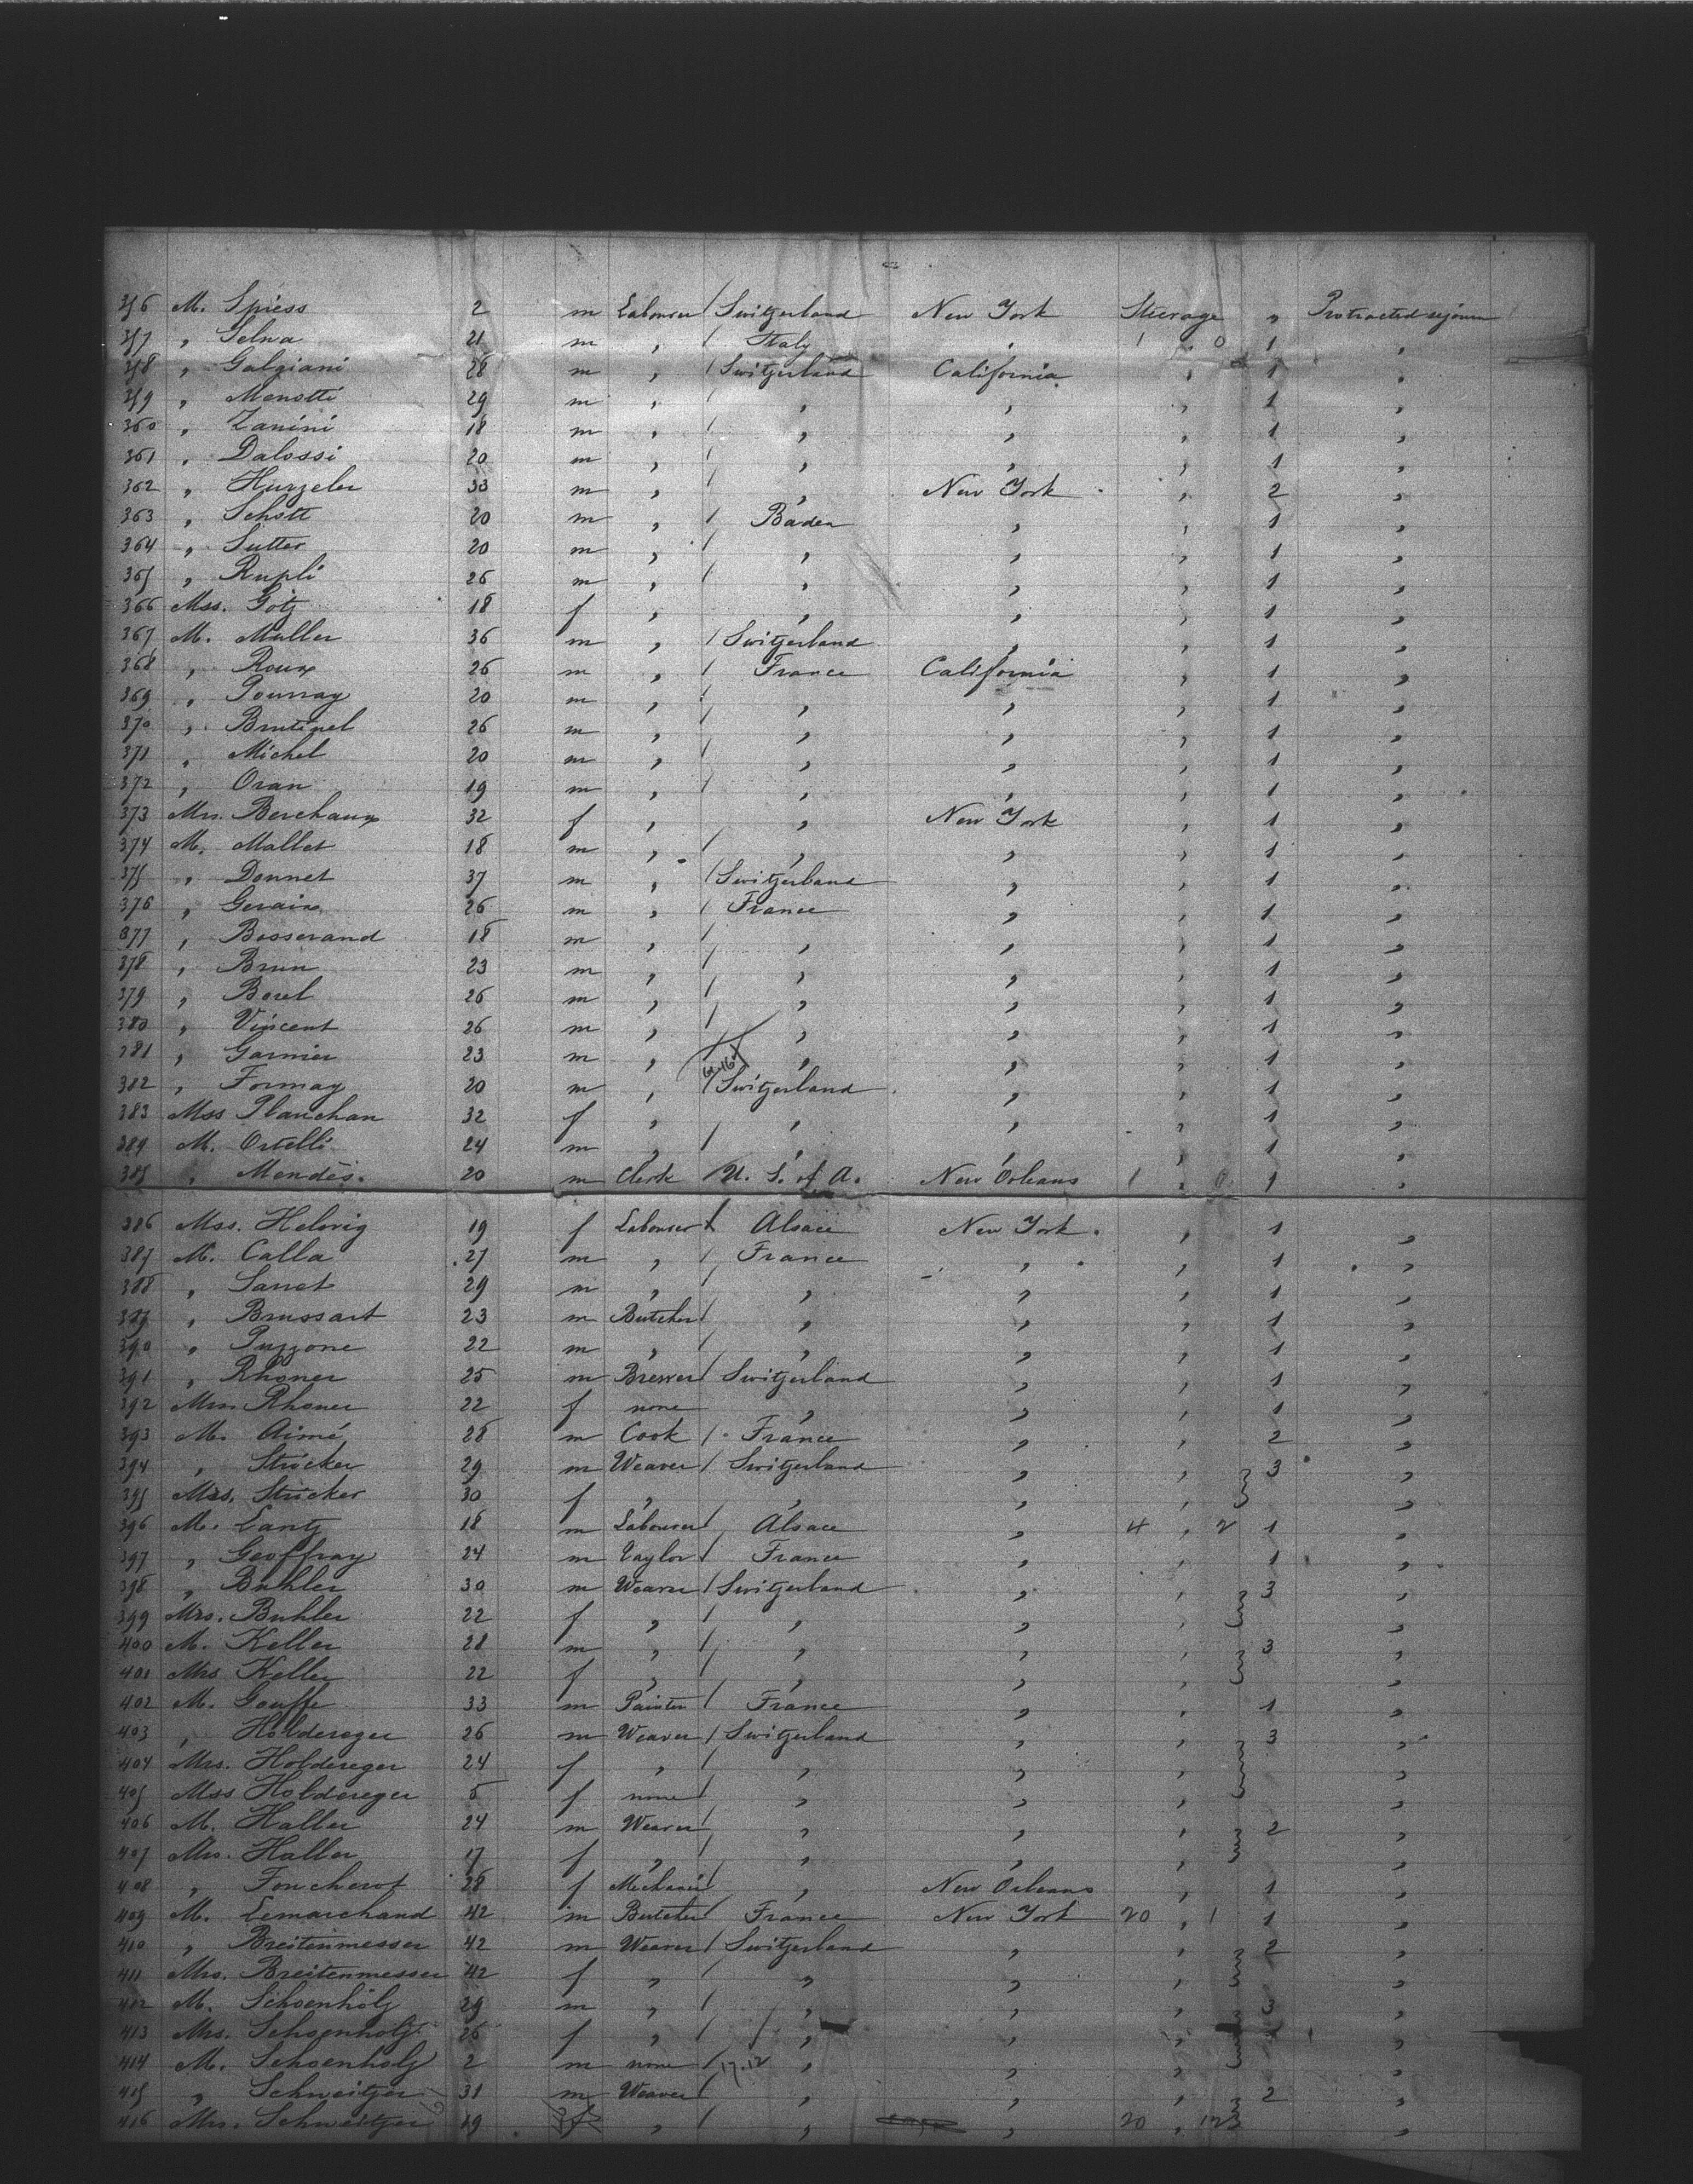 356 M. Spiess 2 m Labourer / Switzerland New York Steerage „ Protracted sejourn
357 „ Selna 21 m „ / Italy „ 1 „ 0 1 „
358 „ Galgiani 28 m „ / Switzerland California „ 1 „
359 „ Menotti 29 m „ / „ „ „ 1 „
360 „ Zanini 18 m „ / „ „ „ 1 „
361 „ Dalossi 20 m „ / „ „ „ 1 „
362 „ Hurzeler 33 m „ / „ New York „ 2 „
363 „ Schott 20 m „ / Baden „ „ 1 „
364 „ Sutter 20 m „ / „ „ „ 1 „
365 „ Rupli 26 m „ / „ „ „ 1 „
366 Mss. Götz 18 f „ „ „ „ 1 „
367 M. Muller 36 m „ / Switzerland „ „ 1 „
368 „ Roux 26 m „ / France California „ 1 „
369 „ Pourray 20 m „ / „ „ „ 1 „
370 „ Brutinel 26 m „ / „ „ „ 1 „
371 „ Michel 20 m „ / „ „ „ 1 „
372 „ Oran 19 m „ / „ „ „ 1 „
373 Mrs. Berchaux 32 f „ „ New York „ 1 „
374 M. Mallet 18 m „ / „ „ „ 1 „
375 „ Donnet 37 m „ / Switzerland „ „ 1 „
376 „ Gerain 26 m „ / France „ „ 1 „
377 „ Bosserand 18 m „ / „ „ „ 1 „
378 „ Brun 23 m „ / „ „ „ 1 „
379 „ Borel 26 m „ / „ „ „ 1 „
380 „ Vincent 26 m „ / „ „ „ 1 „
381 „ Garnier 23 m „ / „ „ „ 1 „
382 „ Formay 20 m „ / Switzerland „ „ 1 „
383 Mss Planchan 32 f „ „ „ „ 1 „
384 M. Ortelli 24 m „ / „ „ „ 1 „
385 „ Mendès. 20 m Clerk / U. S. of A. New Orleans 1 „ 0 1 „
386 Mss. Helwig 19 f Labourer / Alsace New York „ 1 „
387 M. Calla 27 m „ / France „ „ 1 „
388 „ Sarret 29 m „ / „ „ „ 1 „
389 „ Brussart 23 m Butcher / „ „ „ 1 „
390 „ Puzzone 22 m „ / „ „ „ 1 „
391 „ Rhoner 25 m Brewer / Switzerland „ „ 1 „
392 Mrs Rhoner 22 f none „ „ „ 1 „
393 M. Aimé 28 m Cook / France „ „ 2 „
394 „ Stricker 29 m Weaver / Switzerland „ „ 3 „
395 Mrs. Stricker 30 f „ „ „ „ „
396 M. Lantz 18 m Labourer / Alsace „ 4 „ 2 1 „
397 „ Geoffray 24 m Taylor / France „ „ 1 „
398 „ Buhler 30 m Weaver / Switzerland „ „ 3 „
399 Mrs. Buhler 22 f „ / „ „ „ „
400 M. Keller 28 m „ / „ „ „ 3 „
401 Mrs Keller 22 f „ / „ „ „ „
402 M. Gouffe 33 m Painter / France „ „ 1 „
403 „ Holdereger 26 m Weaver / Switzerland „ „ 3 „
404 Mrs. Holdereger 24 f „ / „ „ „ „
405 Mss Holdereger 5 f none / „ „ „ „
406 M. Haller 24 m Weaver / „ „ „ 2 „
407 Mrs. Haller 17 f „ / „ „ „ „
408 „ Foucherot 28 f Mechanic / „ New Orleans „ 1 „
409 M. Lemarchand 42 m Butcher / France New York 20 „ 1 1 „
410 „ Breitenmesser 42 m Weaver / Switzerland „ „ 2 „
411 Mrs. Breitenmesser 42 f „ / „ „ „ „
412 M. Schoenholz 29 m „ / „ „ „ 3 „
413 Mrs. Schoenholz 26 f „ / „ „ „ „
414 M. Schoenholz 2 m none / 17.12 „ „ „ „
415 „ Schweitzer 31 m Weaver / „ „ „ 2 „
416 Mrs. Schweitzer 19 f „ / „ „ 20 „ 12 „